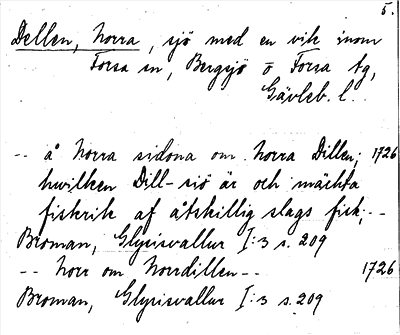 5.
Dellen, Norra, sjö med en vik inom
Forsa sn, Bergsjö o Forsa tg,
Gävleb. l.
-- å norra sidona om norra Dillen; 1726
hwilken Dill-siö är och mächta
fiskrik af åtskillig slags fisk; --
Broman, Glysisvallur I:3 s. 209
-- norr om Norrdillen -- 1726
Broman, Glysisvallur I:3 s. 209